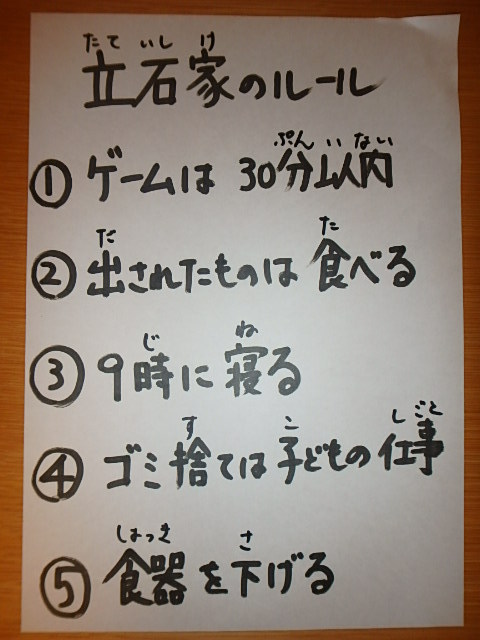 たていしけ
立石家のルール
ぷんいない
① ゲームは 30分以内
だ た
② 出されたものは 食べる
じ ね
③ 9時に 寝る
す こ しごと
④ ゴミ捨ては子どもの仕事
しょっき さ
⑤ 食器を下げる